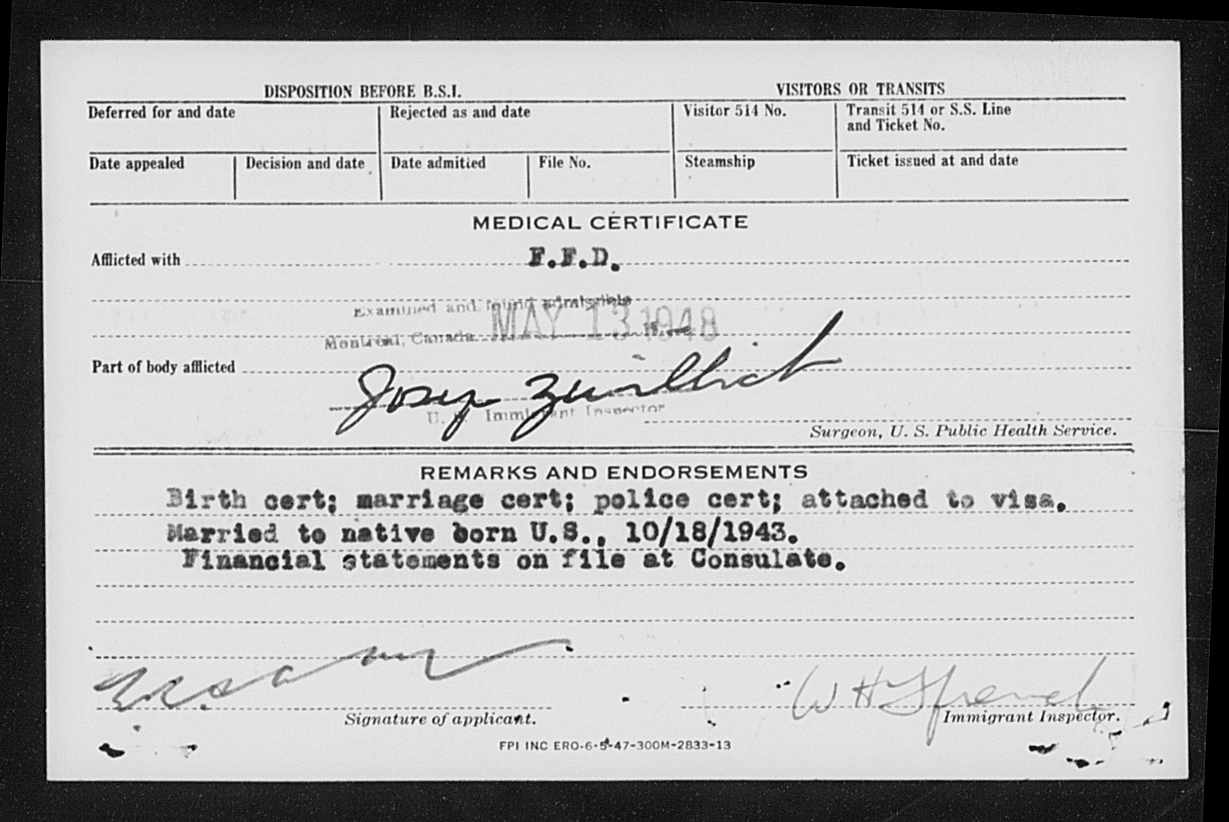 DISPOSITION BEFORE B.S.I.
VISITORS OR TRANSITS
Deferred for and date
Rejected as and date
Visitor 514 No.
Transit 514 or S.S. Line
and Ticket No.
Date appealed
Decision and date
Date admitted
File No.
Steamship
Ticket issued at and date
MEDICAL CERTIFICATE
Afflicted with F.F.D.
Examined and found admissible
Montreal, Canada MAY 13 1948
Part of body afflicted
U. S. Immigrant Inspector
Surgeon, U. S. Public Health Service.
REMARKS AND ENDORSEMENTS
Birth cert; marriage cert; police cert; attached to visa.
Married to native born U.S., 10/18/1943.
Financial statements on file at Consulate.
W H
Signature of applicant.
Immigrant Inspector.
FPI INC ERO-6-5-47-300M-2833-13